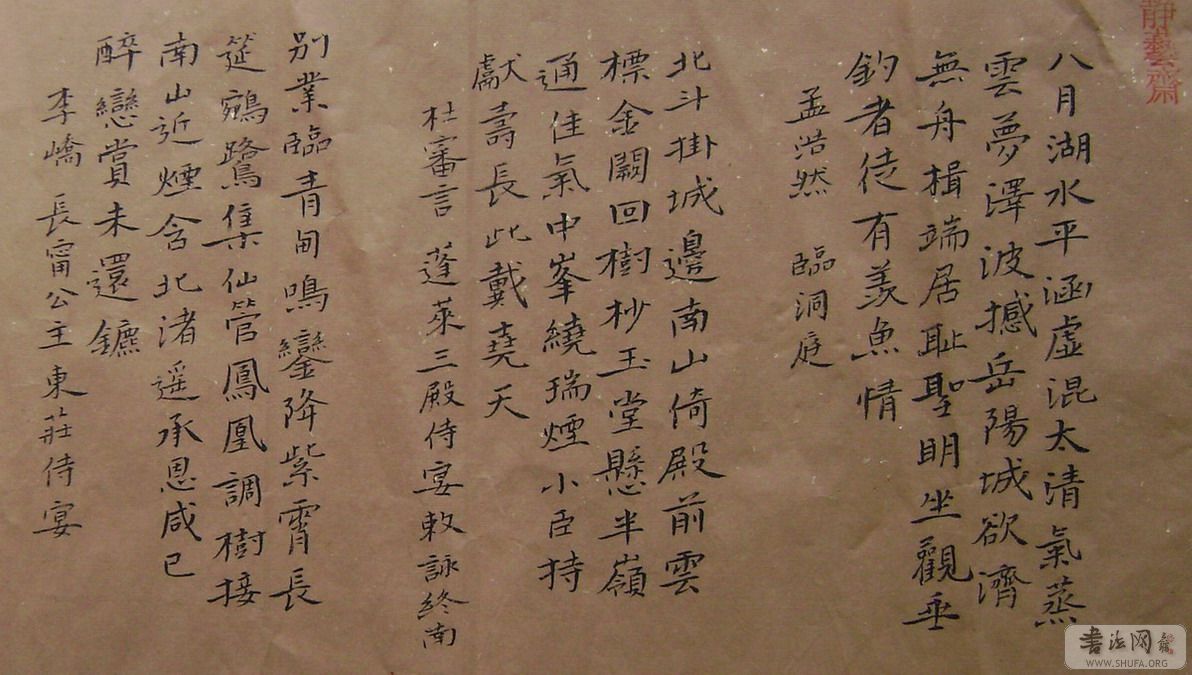 靜藝齋
八月湖水平涵虛混太清氣蒸
雲夢澤波撼岳陽城欲濟
無舟楫端居恥聖明坐觀垂
釣者徒有羨魚情
孟浩然 臨洞庭
北斗掛城邊南山倚殿前雲
標金闕回樹杪玉堂懸半嶺
通佳氣中峯繞瑞煙小臣持
獻壽長此戴堯天
杜審言 蓬萊三殿侍宴敕詠終南
別業臨青甸鳴鑾降紫霄長
筵鵷鷺集仙管鳳凰調樹接
南山近煙含北渚遥承恩咸已
醉戀賞未還鑣
李嶠 長甯公主東莊侍宴
書法网
WWW.SHUFA.ORG